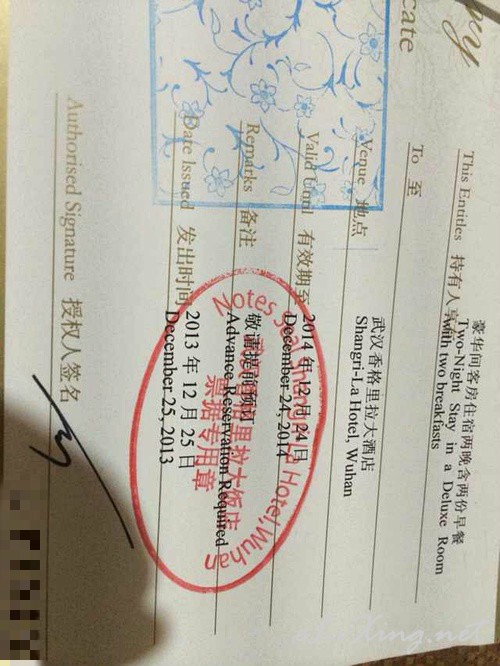 cate
To 至
This Entitles 持有人享
豪华间客房住宿两晚含两份早餐
Two-Night Stay in a Deluxe Room
with two breakfasts
Venue 地点
武汉香格里拉大酒店
Shangri-La Hotel, Wuhan
Valid Until 有效期至
2014 年 12 月 24 日
December 24, 2014
Remarks 备注
敬请提前预订
Advance Reservation Required
Date Issued 发出时间
2013 年 12 月 25 日
December 25, 2013
Authorised Signature 授权人签名
Notes Hotel, Wuhan
里拉大饭店
票据专用章